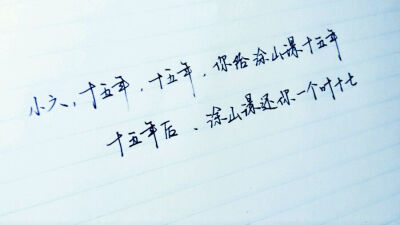 小六，十五年，十五年，你给涂山璟十五年
十五年后、涂山璟还你一个叶十七